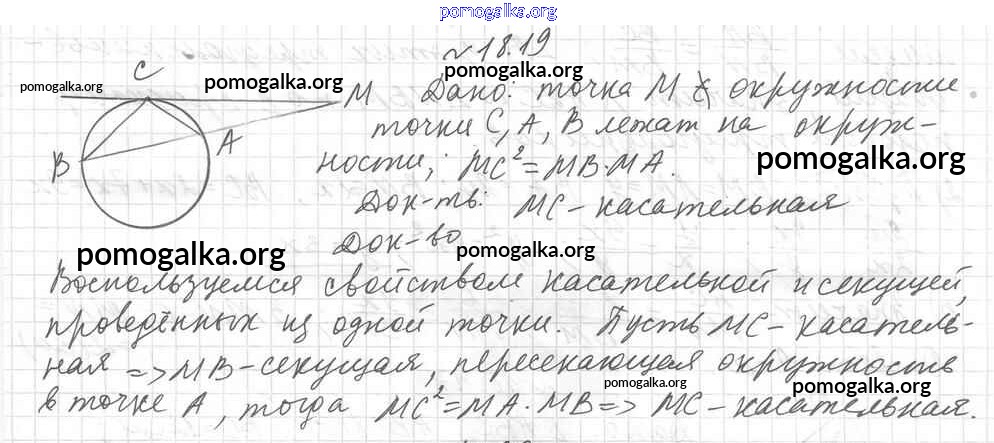 pomogalka.org
№18.19
pomogalka.org
C
pomogalka.org
pomogalka.org
M
Дано: точка M ∉ окружности.
A
точки C, A, B лежат на окруж-
B
ности; MC²=MB·MA.
pomogalka.org
Док-ть: MC-касательная
pomogalka.org
Док-во
pomogalka.org
Воспользуемся свойством касательной и секущей,
проведённых из одной точки. Пусть MC-касатель-
ная => MB-секущая, пересекающая окружность
pomogalka.org
pomogalka.org
в точке A, тогда MC²=MA·MB=> MC-касательная.